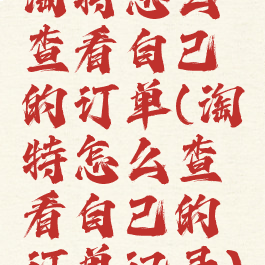 淘特怎么
查看自己
的订单(淘
特怎么查
看自己的
订单记录)